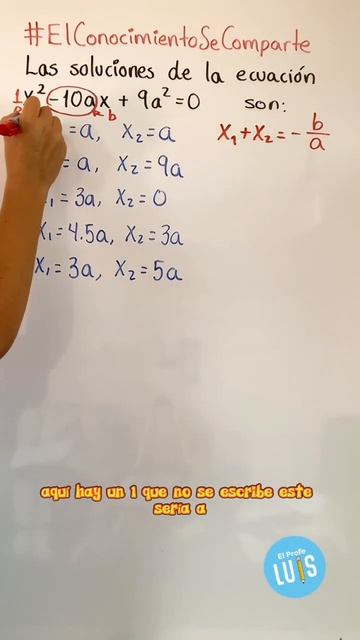 #ElConocimientoSeComparte
Las soluciones de la ecuación
1x² -10ax + 9a² = 0 son:
b
X₁ + X₂ = - b/a
= a, X₂ = a
= a, X₂ = 9a
₁ = 3a, X₂ = 0
X₁ = 4.5a, X₂ = 3a
X₁ = 3a, X₂ = 5a
aquí hay un 1 que no se escribe este
sería a
El Profe
LUIS